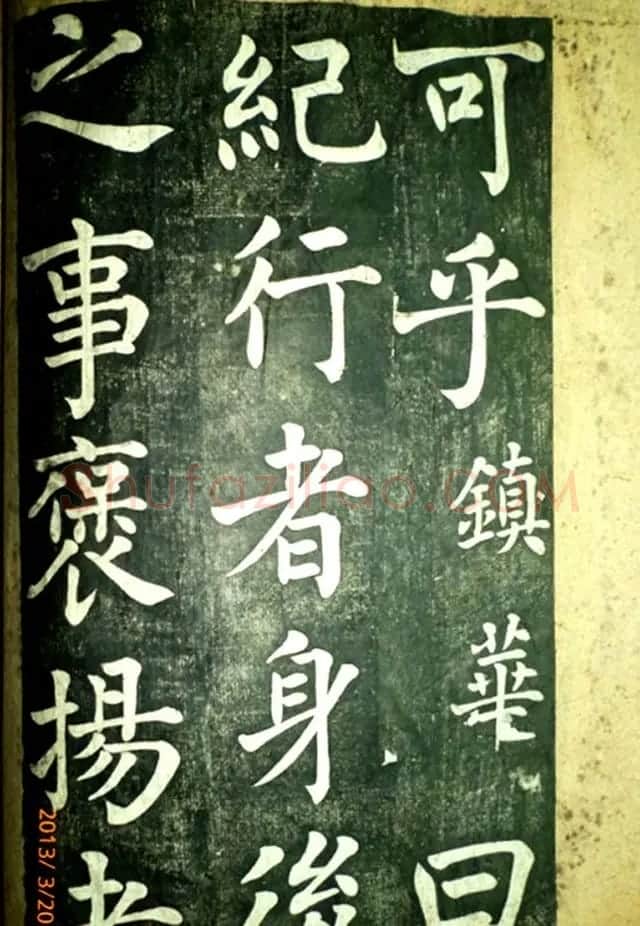 可乎鎮華曰
紀行者身後
之事褒揚者
Shufaziliao.com
2013/ 3/20